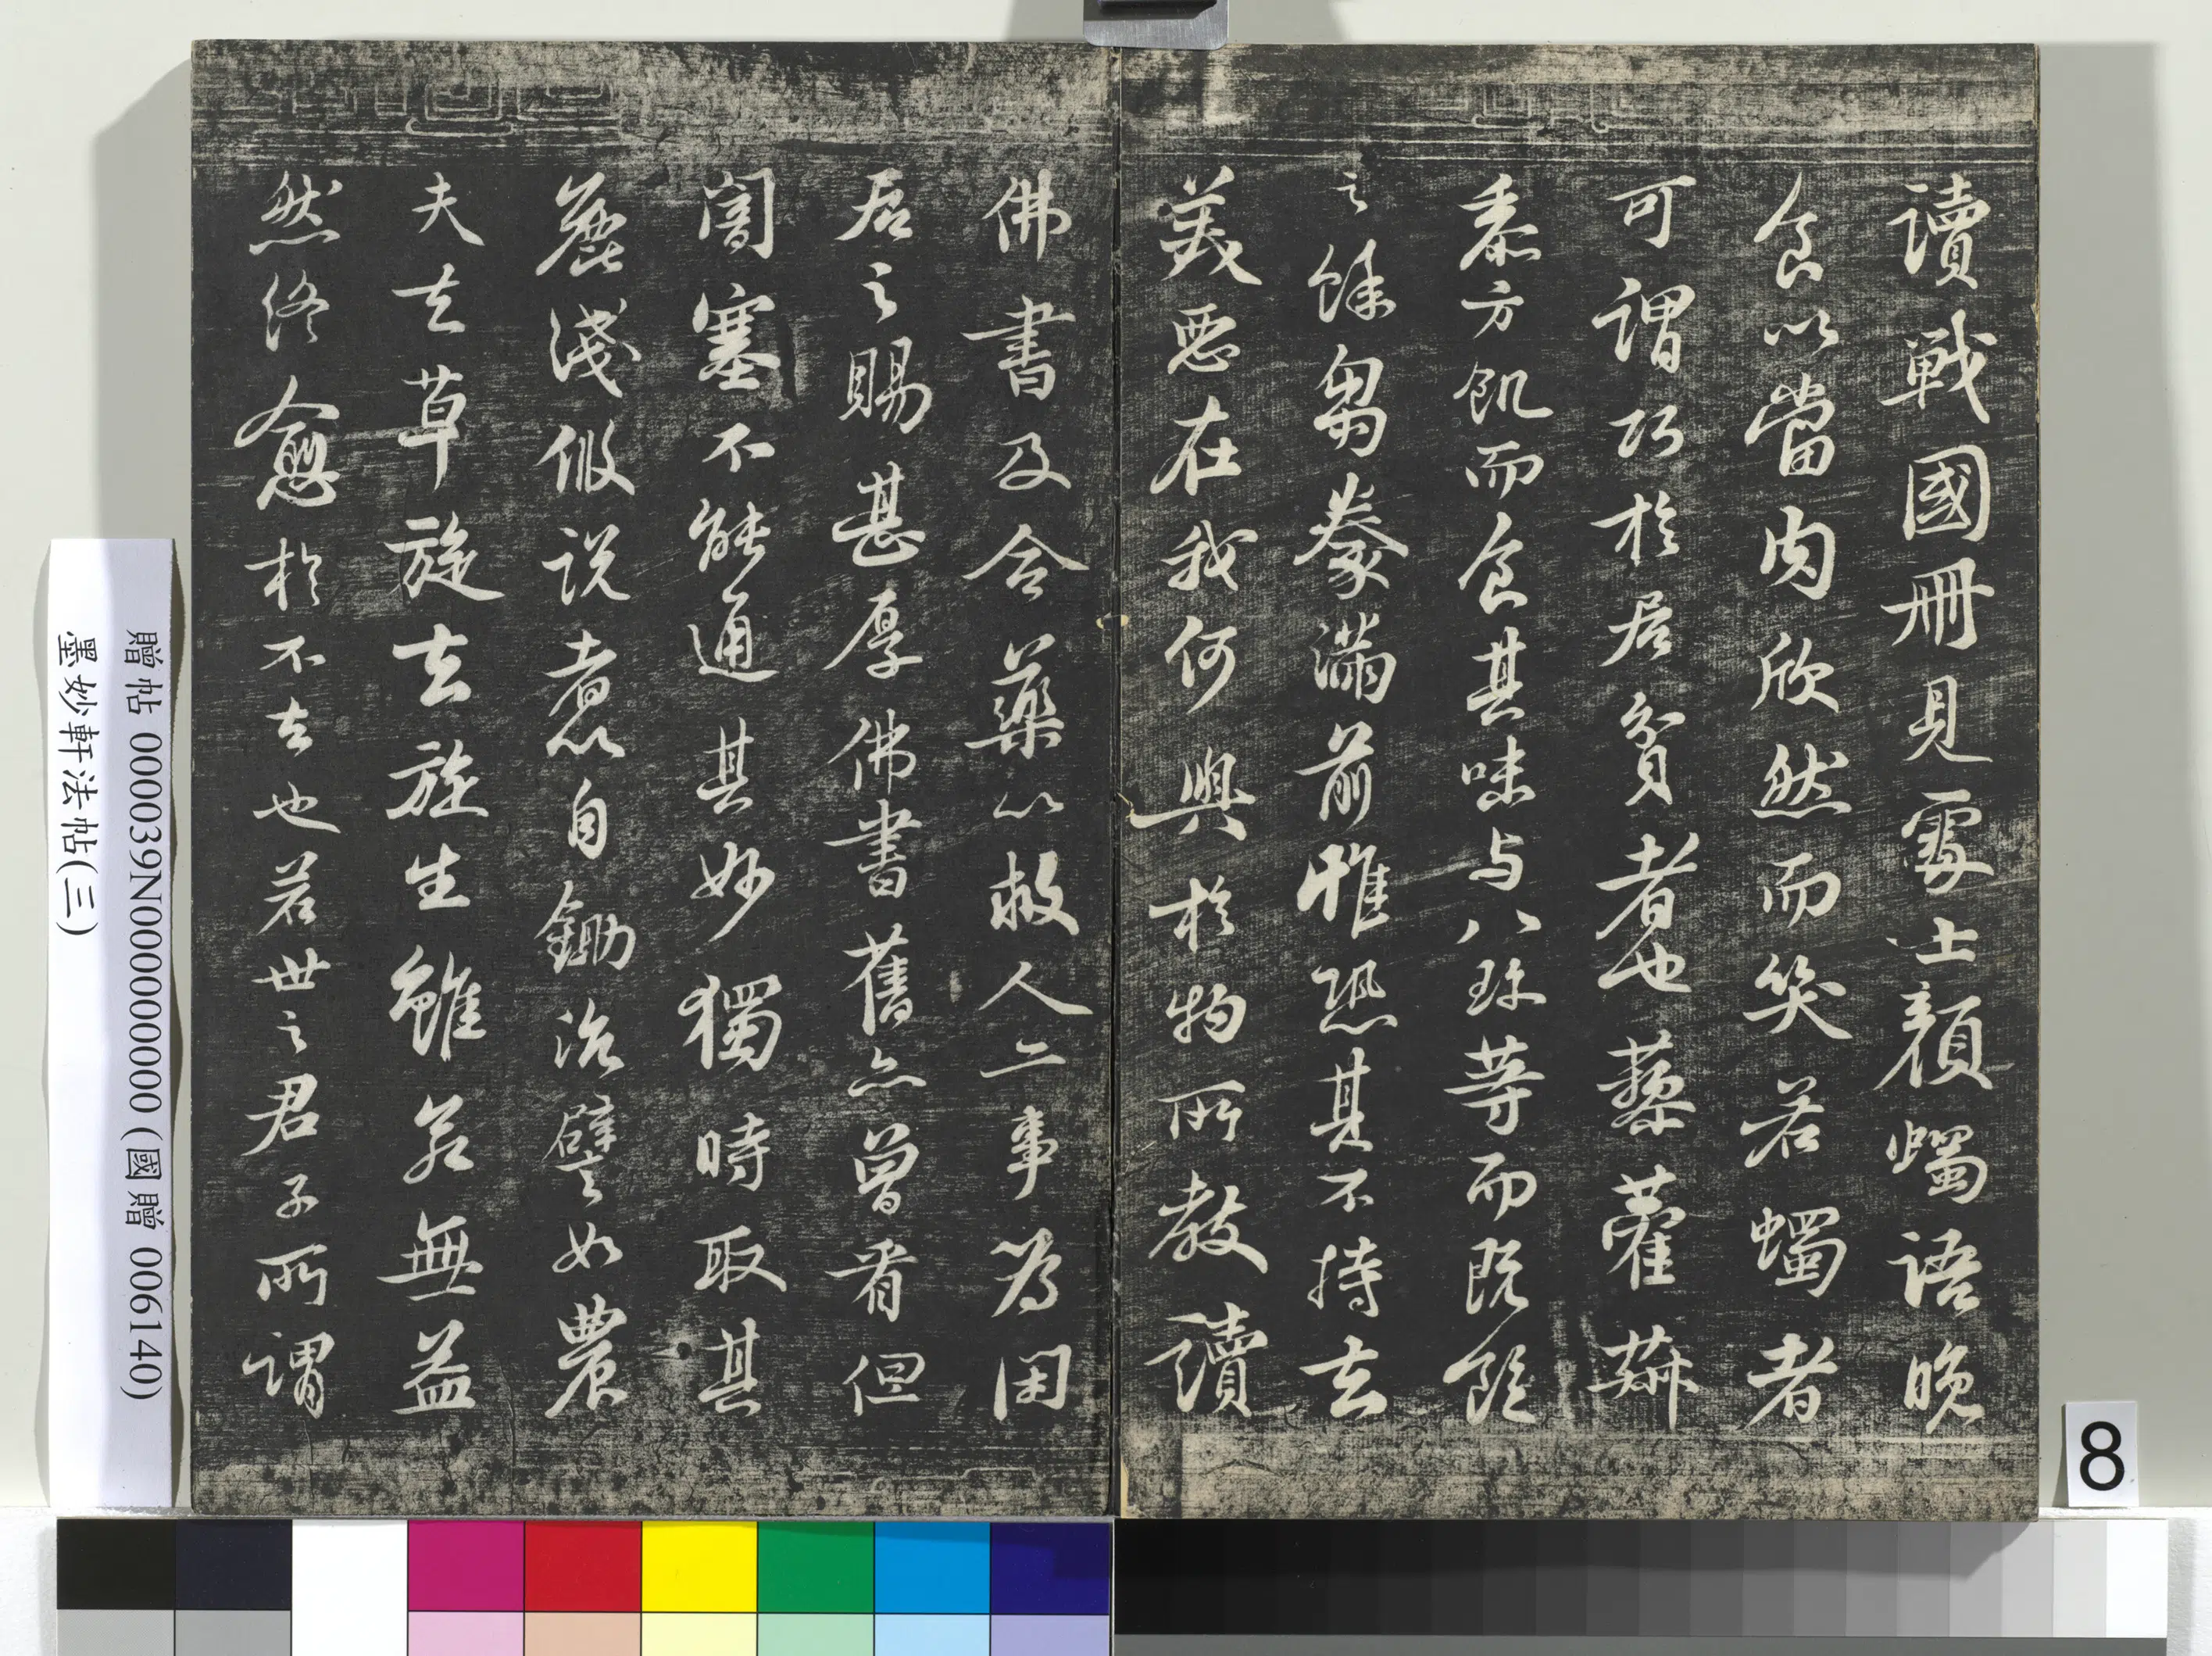 讀戰國冊見處士顏蠋語晚
食以當肉欣然而笑若蠋者
可謂巧於居貧者也藜藿菽
黍方飢而食其味与八珍等而既飽
之餘芻豢滿前惟恐其不持去
美惡在我何與於物所教讀
佛書及合藥以救人二事為閑
居之賜甚厚佛書舊亦曾看但
闇塞不能通其妙獨時取其
麤淺假說者以自鋤治譬如農
夫去草旋去旋生雖若無益
然終愈於不去也若世之君子所謂
贈帖 000039N000000000 (國贈 006140)
墨妙軒法帖(三)
8